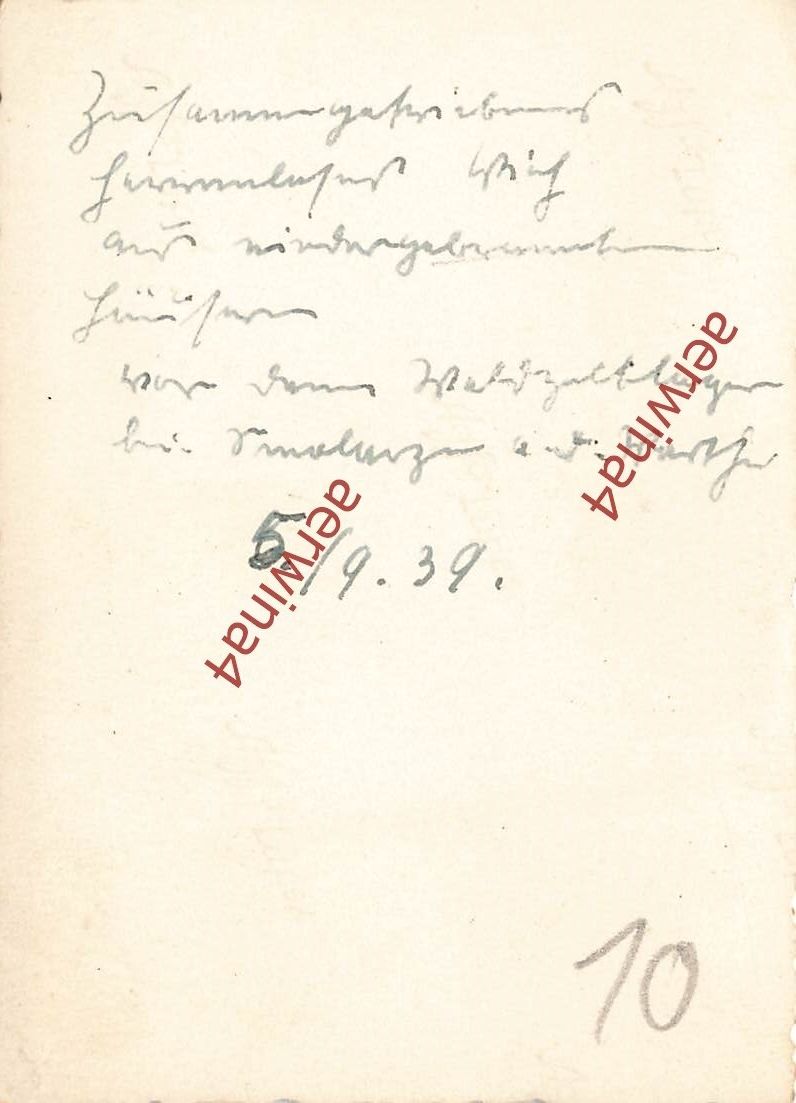 Zusammengetriebenes
herrenloses Vieh
aus niedergebrannten
Häusern
vor dem Waldzeltlager
bei a.d. Warthe
5./9.39.
aerwina4
aerwina4
10